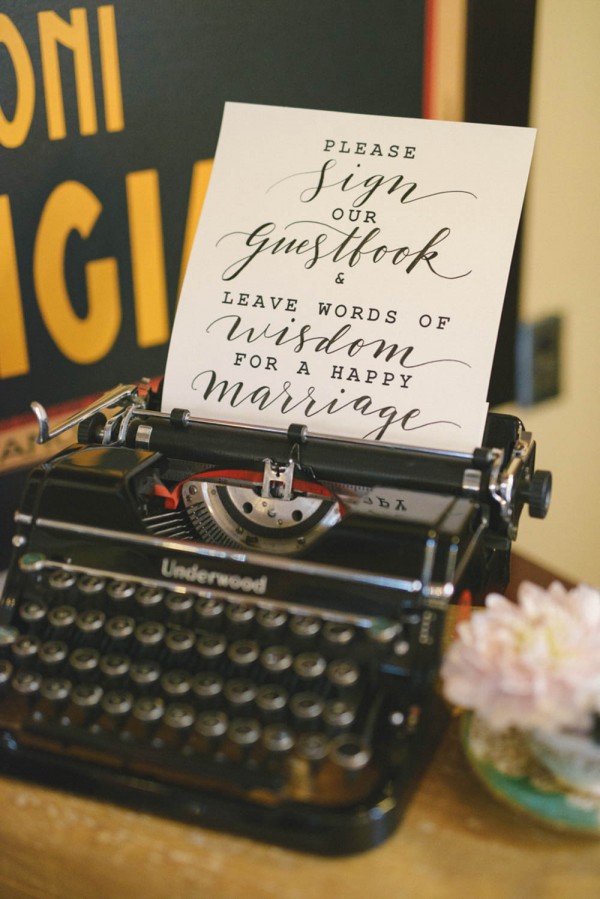 ONI
IGIA
PLEASE
Sign
OUR
Guestbook
&
LEAVE WORDS OF
wisdom
FOR A HAPPY
Marriage
Underwood